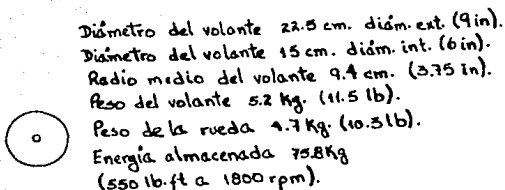 Diámetro del volante 22.5 cm. diám. ext. (9 in).
Diámetro del volante 15 cm. diám. int. (6 in).
Radio medio del volante 9.4 cm. (3.75 in).
Peso del volante 5.2 Kg. (11.5 lb).
Peso de la rueda 4.7 Kg. (10.3 lb).
Energía almacenada 75.8 Kg
(550 lb.ft a 1800 rpm).